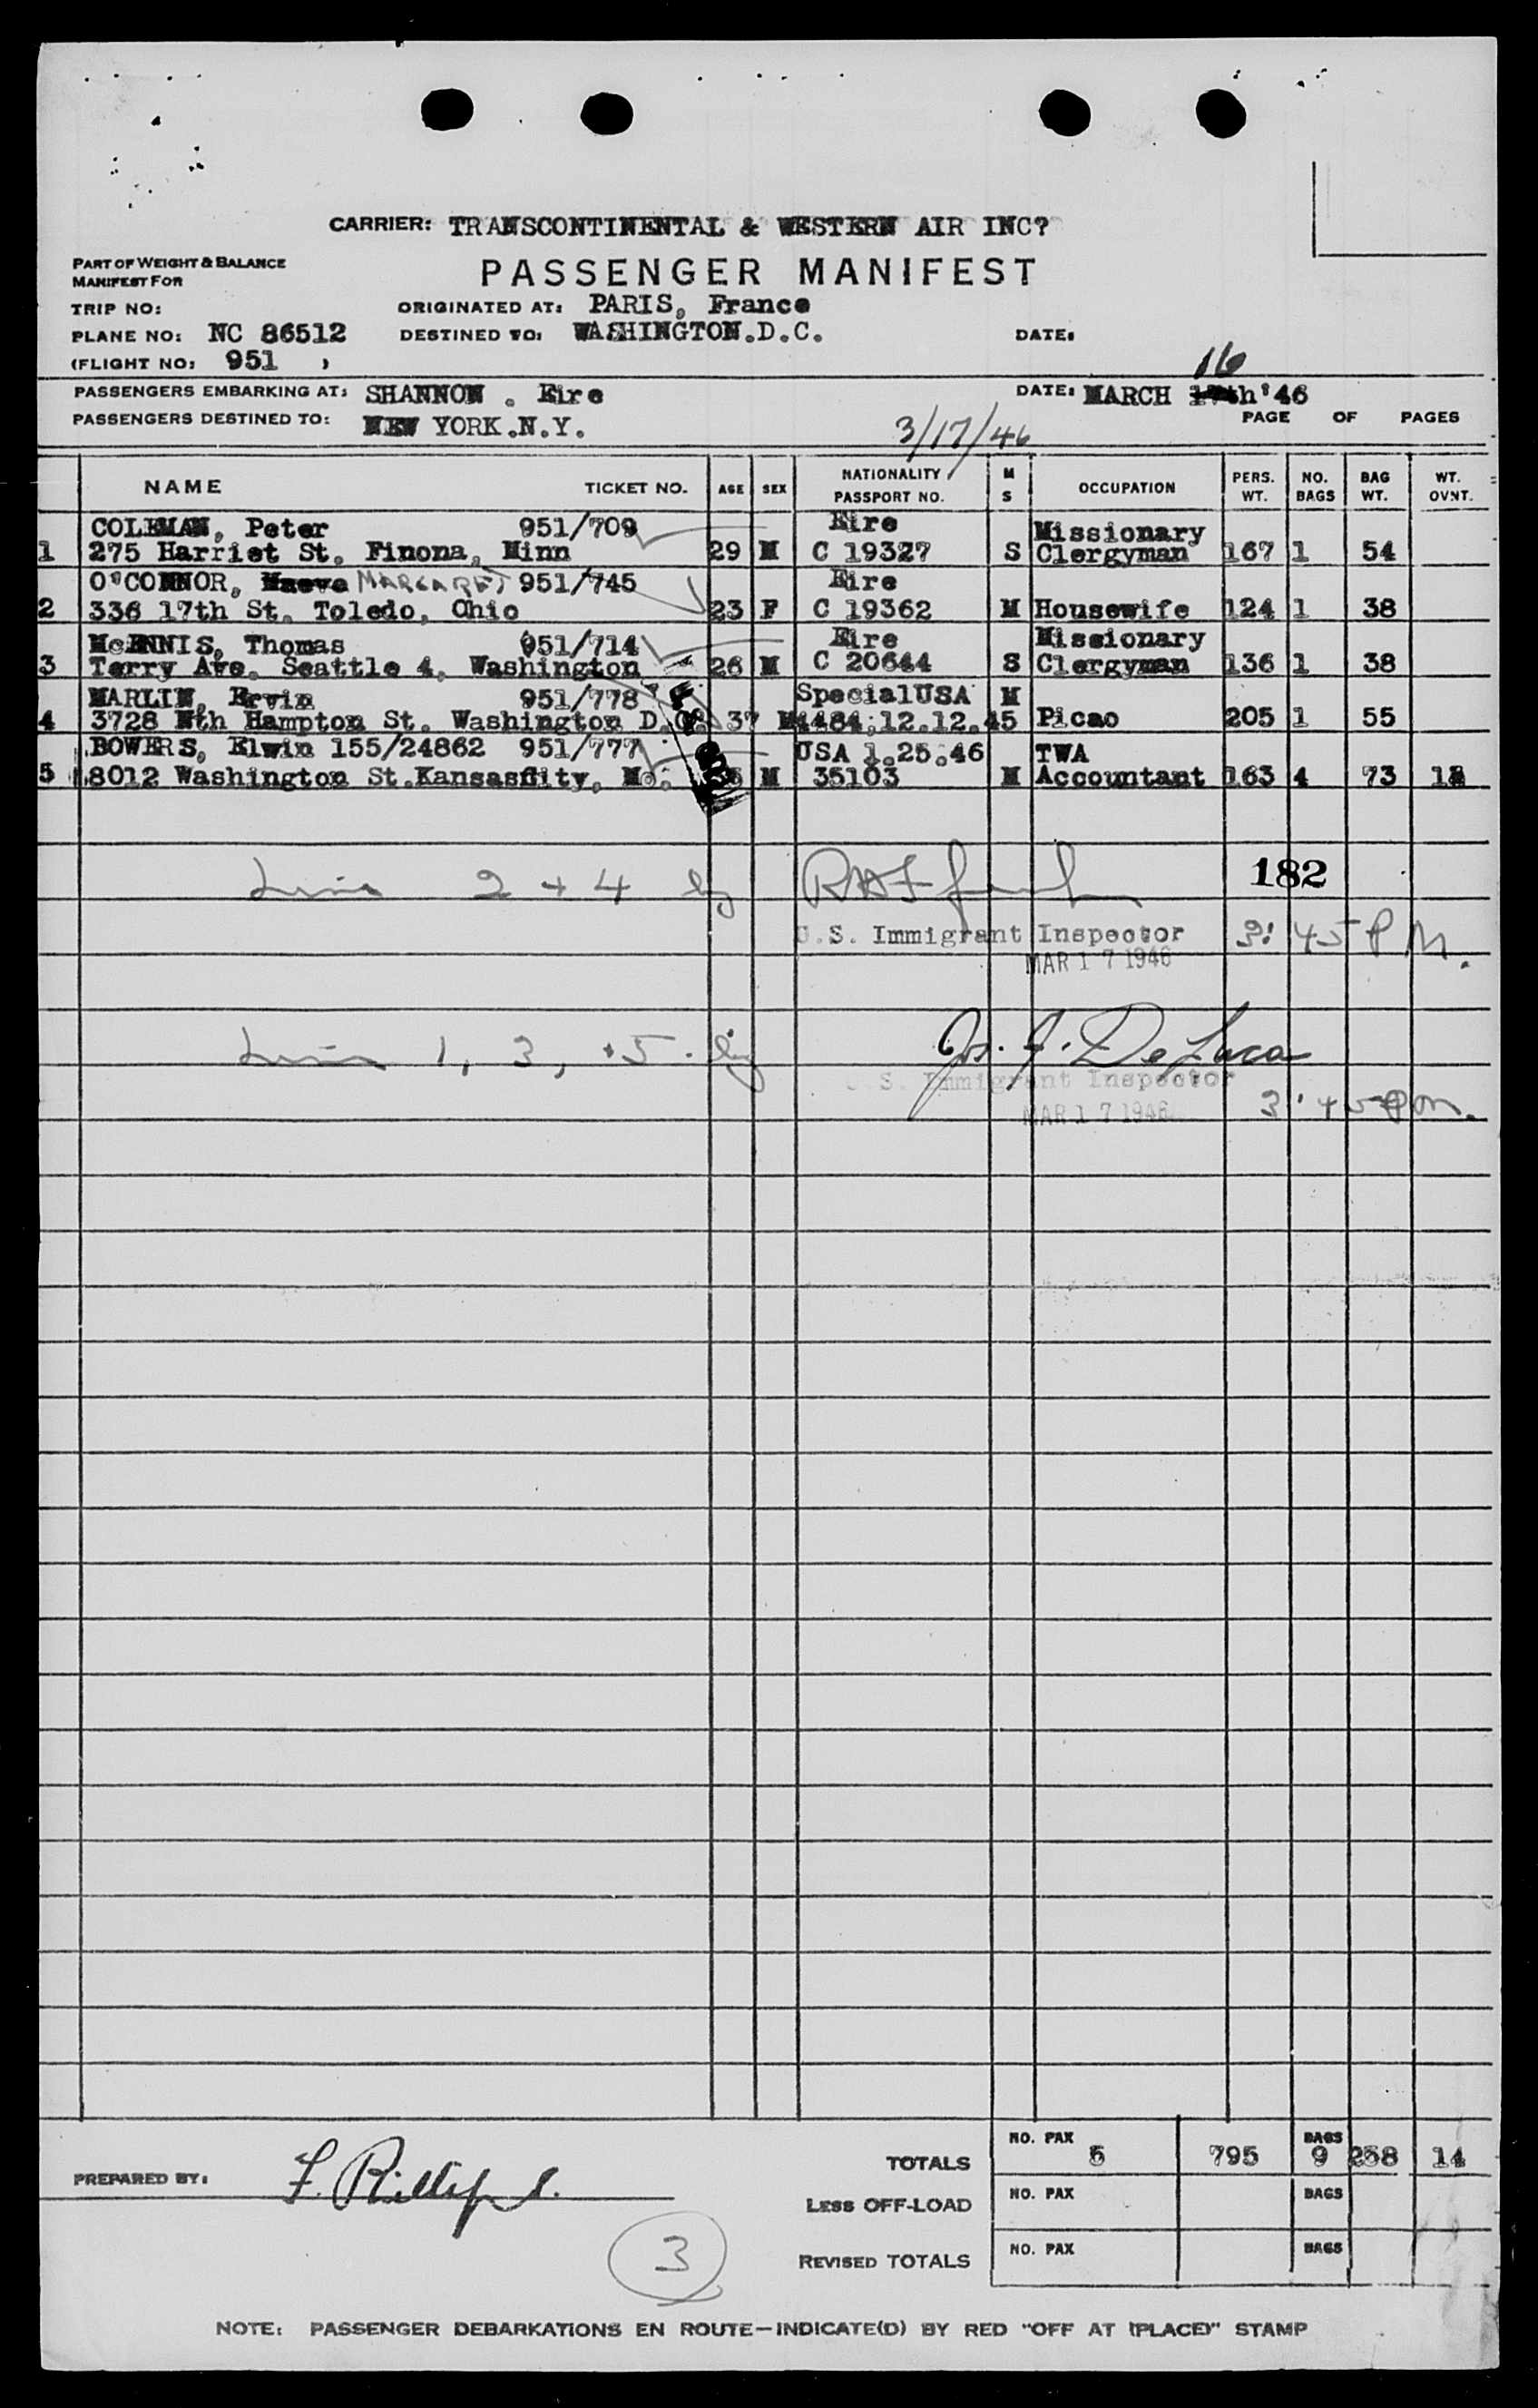 CARRIER: TRANSCONTINENTAL & WESTERN AIR INC?
PART OF WEIGHT & BALANCE
MANIFEST FOR
PASSENGER MANIFEST
TRIP NO:
ORIGINATED AT: PARIS, France
PLANE NO: NC 86512
DESTINED TO: WASHINGTON.D.C.
DATE:
(FLIGHT NO: 951 )
16
PASSENGERS EMBARKING AT: SHANNON . Eire
DATE: MARCH 17th'46
PASSENGERS DESTINED TO: NEW YORK.N.Y.
3/17/46
PAGE OF PAGES
NAME TICKET NO. AGE SEX NATIONALITY PASSPORT NO. M S OCCUPATION PERS. WT. NO. BAGS BAG WT. WT. OVNT.
COLEMAN, Peter 951/709 Eire Missionary
1 275 Harriet St. Finona, Minn 29 M C 19327 S Clergyman 167 1 54
O'CONNOR, Maeve MARGARET 951/745 Eire
2 336 17th St. Toledo, Ohio 23 F C 19362 M Housewife 124 1 38
McENNIS, Thomas 951/714 Eire Missionary
3 Terry Ave. Seattle 4, Washington 26 M C 20644 S Clergyman 136 1 38
MARLIN, Ervin 951/778 SpecialUSA M
4 3728 Nth Hampton St. Washington D.C. 37 M 4484;12.12.45 Picao 205 1 55
BOWERS, Elwin 155/24862 951/777 USA 1.25.46 TWA
5 8012 Washington St.KansasCity, Mo. M 35103 M Accountant 163 4 73
2 + 4 by
182
U.S. Immigrant Inspector 3:45 PM.
MAR 17 1946
1, 3, +5. by Jos. J. DeLuca
U.S. Immigrant Inspector
MAR 17 1946 3:45 PM.
PREPARED BY:
TOTALS NO. PAX 5 795 BAGS 9 258 14
LESS OFF-LOAD NO. PAX BAGS
3
REVISED TOTALS NO. PAX BAGS
NOTE: PASSENGER DEBARKATIONS EN ROUTE—INDICATE(D) BY RED "OFF AT (PLACE)" STAMP